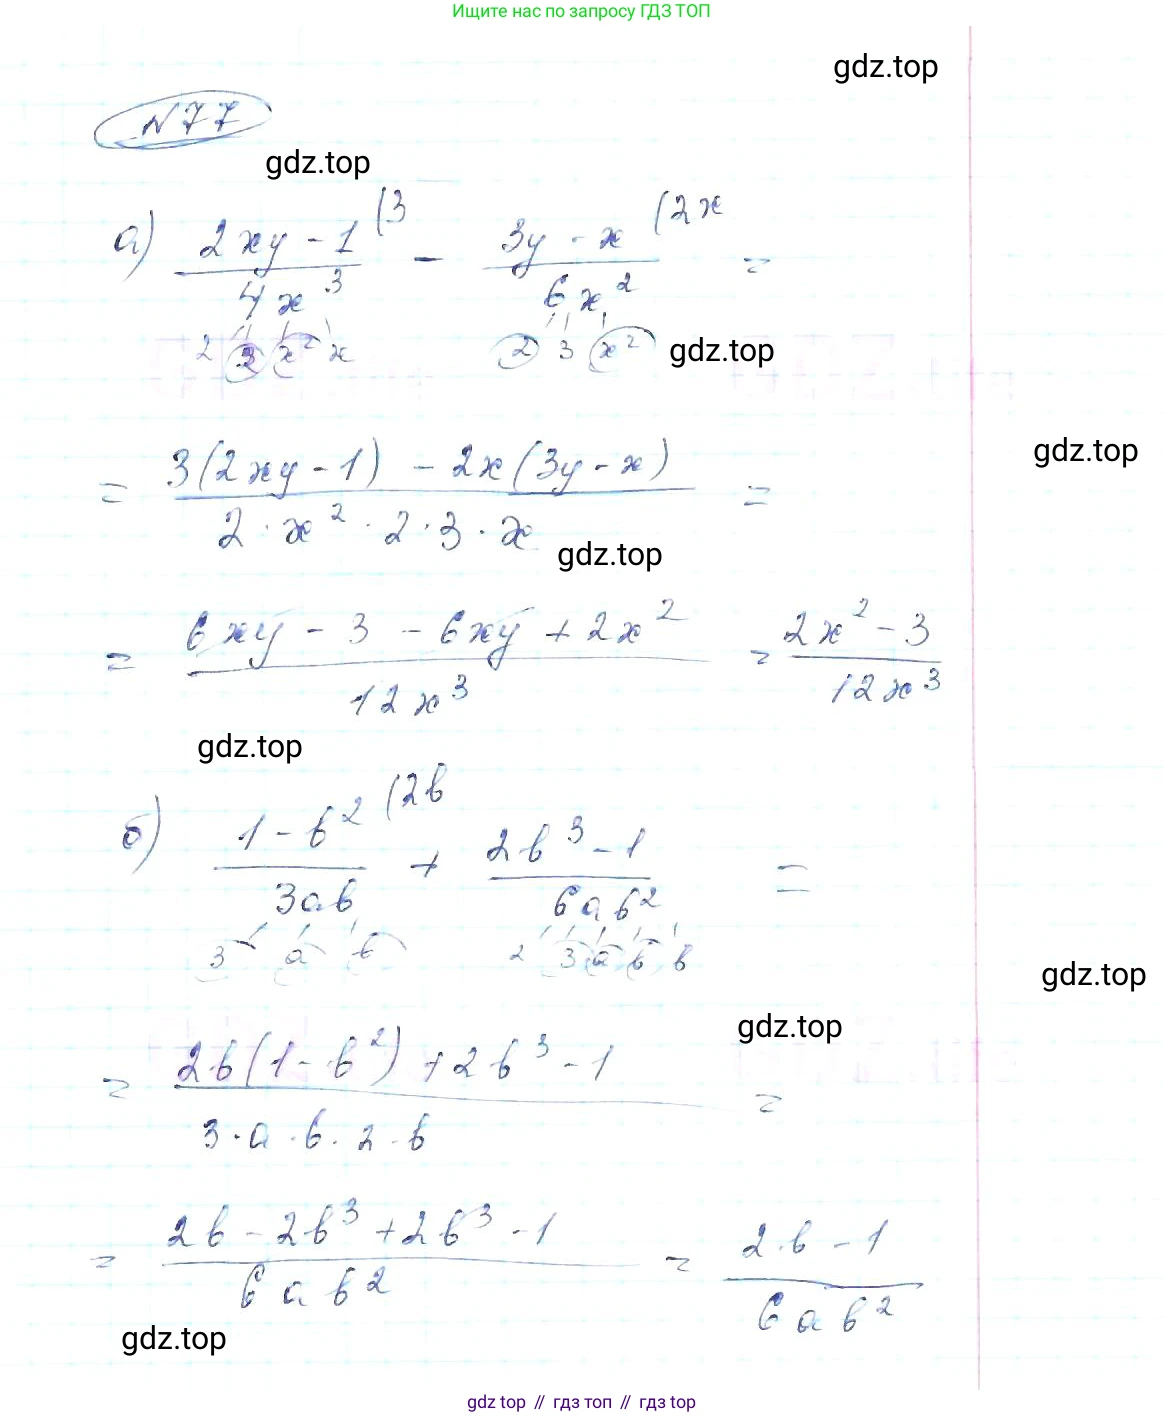 Ищите нас по запросу ГДЗ ТОП
gdz.top
№77
gdz.top
а) (2xy - 1)/(4x³) (3 - (3y - x)/(6x²) (2x =
2 2 x² x 2 3 x² gdz.top
gdz.top
= (3(2xy - 1) - 2x(3y - x))/(2 · x² · 2 · 3 · x) =
gdz.top
= (6xy - 3 - 6xy + 2x²)/(12x³) = (2x² - 3)/(12x³)
gdz.top
б) (1 - b²)/(3ab) (2b + (2b³ - 1)/(6ab²) =
3 a b 2 3 a b b
gdz.top
gdz.top
= (2b(1 - b²) + 2b³ - 1)/(3 · a · b · 2 · b) =
= (2b - 2b³ + 2b³ - 1)/(6ab²) = (2b - 1)/(6ab²)
gdz.top
gdz top // гдз топ // гдз top